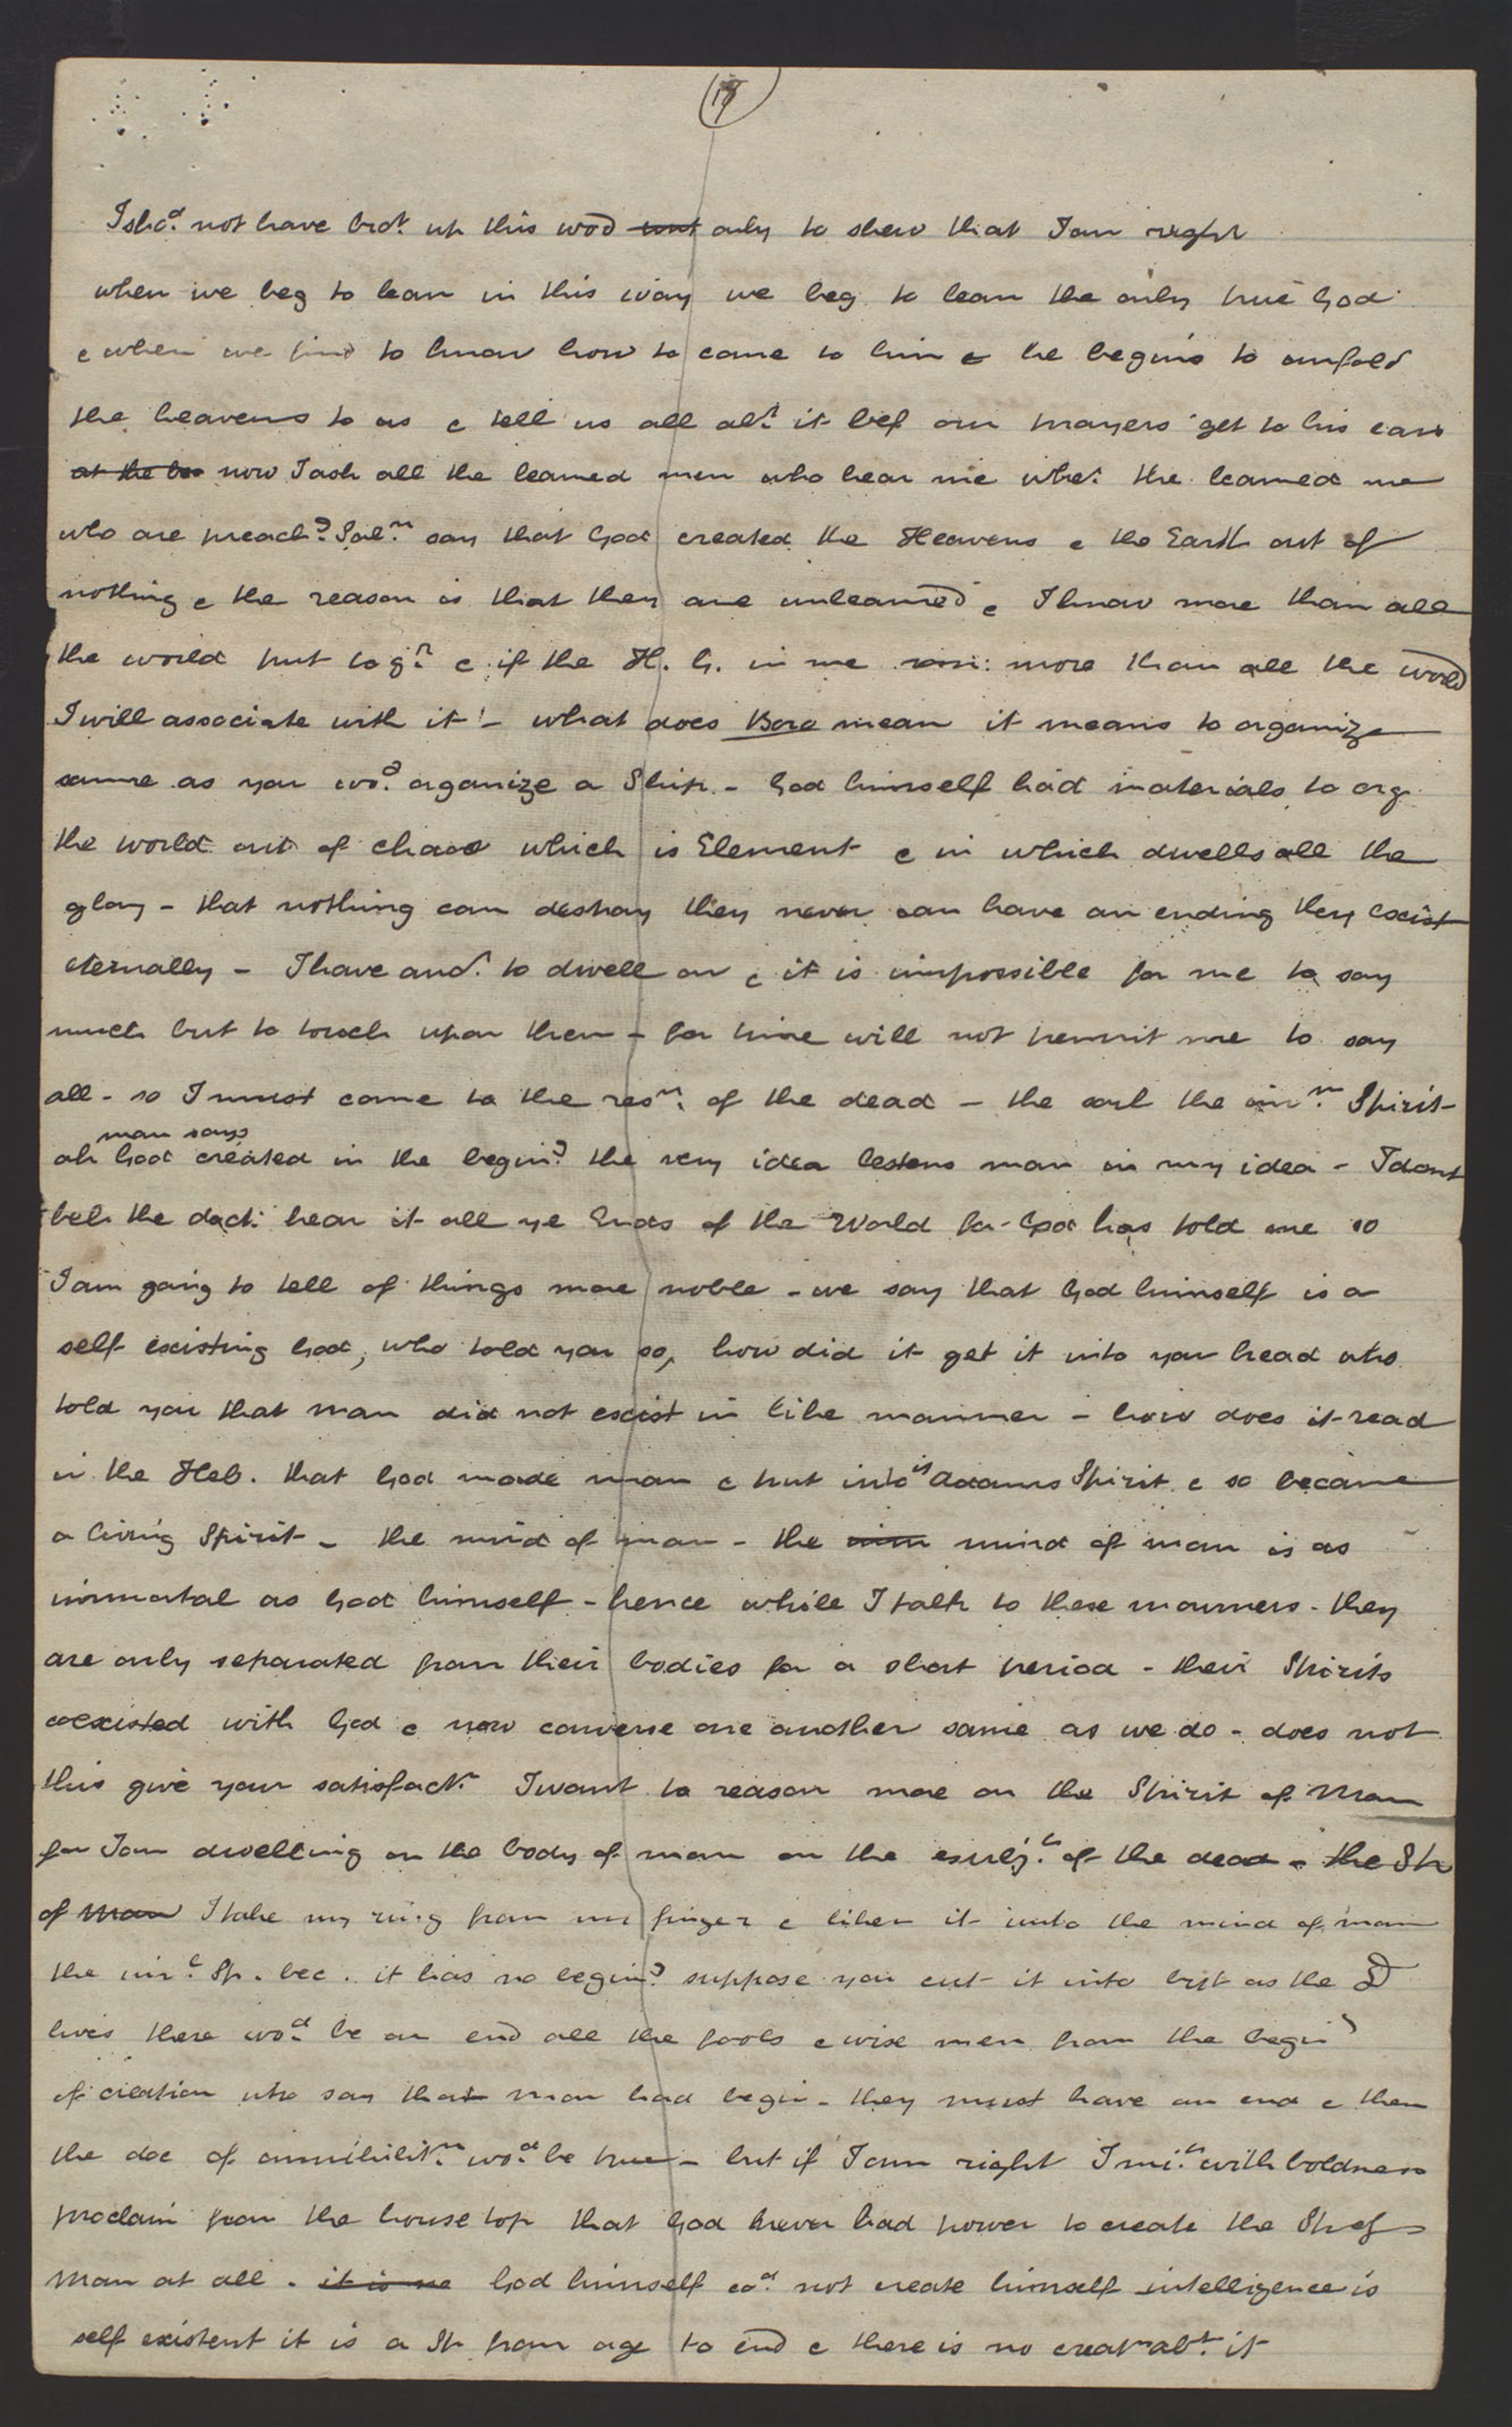 17
I sho.d not have bro.t up this word only to shew that I am right
when we beg to learn in this way we beg to learn the only true God
& when we find to know how to come to him & he begins to unfold
the heavens to us & tell us all ab.t it bef our prayers get to his ears
now I ask all the learned men who hear me whe.r the learned me
who are preach.g Sal.n say that God created the Heavens & the Earth out of
nothing & the reason is that they are unlearned & I know more than all
the world put tog.r & if the H. G. in me com: more than all the world
I will associate with it! - what does Bara mean it means to organize
same as you wo.d organize a Ship. - God himself had materials to org
the world out of chaos which is Element & in which dwells all the
glory - that nothing can destroy they never can have an ending they coexist
eternally - I have ano.r to dwell on & it is impossible for me to say
much but to touch upon them - for time will not permit me to say
all - so I must come to the res.n of the dead - the soul the im.m Spirit -
man says
ah God created in the begin.g the very idea lessens man in my idea - I dont
bel. the doct: hear it all ye Ends of the World for God has told me so
I am going to tell of things more noble - we say that God himself is a
self existing God, who told you so, how did it get it into your head who
told you that man did not exist in like manner - how does it read
in the Heb. that God made man & put into it Adams Spirit & so became
a living Spirit - the mind of man - the mind of man is as
immortal as God himself - hence while I talk to these mourners - they
are only separated from their bodies for a short period - their Spirits
coexisted with God & now converse one another same as we do - does not
this give your satisfact.n I want to reason more on the Spirit of Man
for I am dwelling on the body of man on the subj.t of the dead - the Sp
of man I take my ring from my finger & liken it unto the mind of man
the im.l Sp. bec. it has no begin.g suppose you cut it into but as the D
lives there wo.d be an end all the fools & wise men from the begin
of creation who say that man had begin - they must have an end & then
the doc of annihilit.n wo.d be true - but if I am right I mi.t with boldness
proclaim from the house top that God never had power to create the Sp of
Man at all - it is ne God himself co.d not create himself intelligence is
self existent it is a Sp from age to end & there is no creatn ab.t it